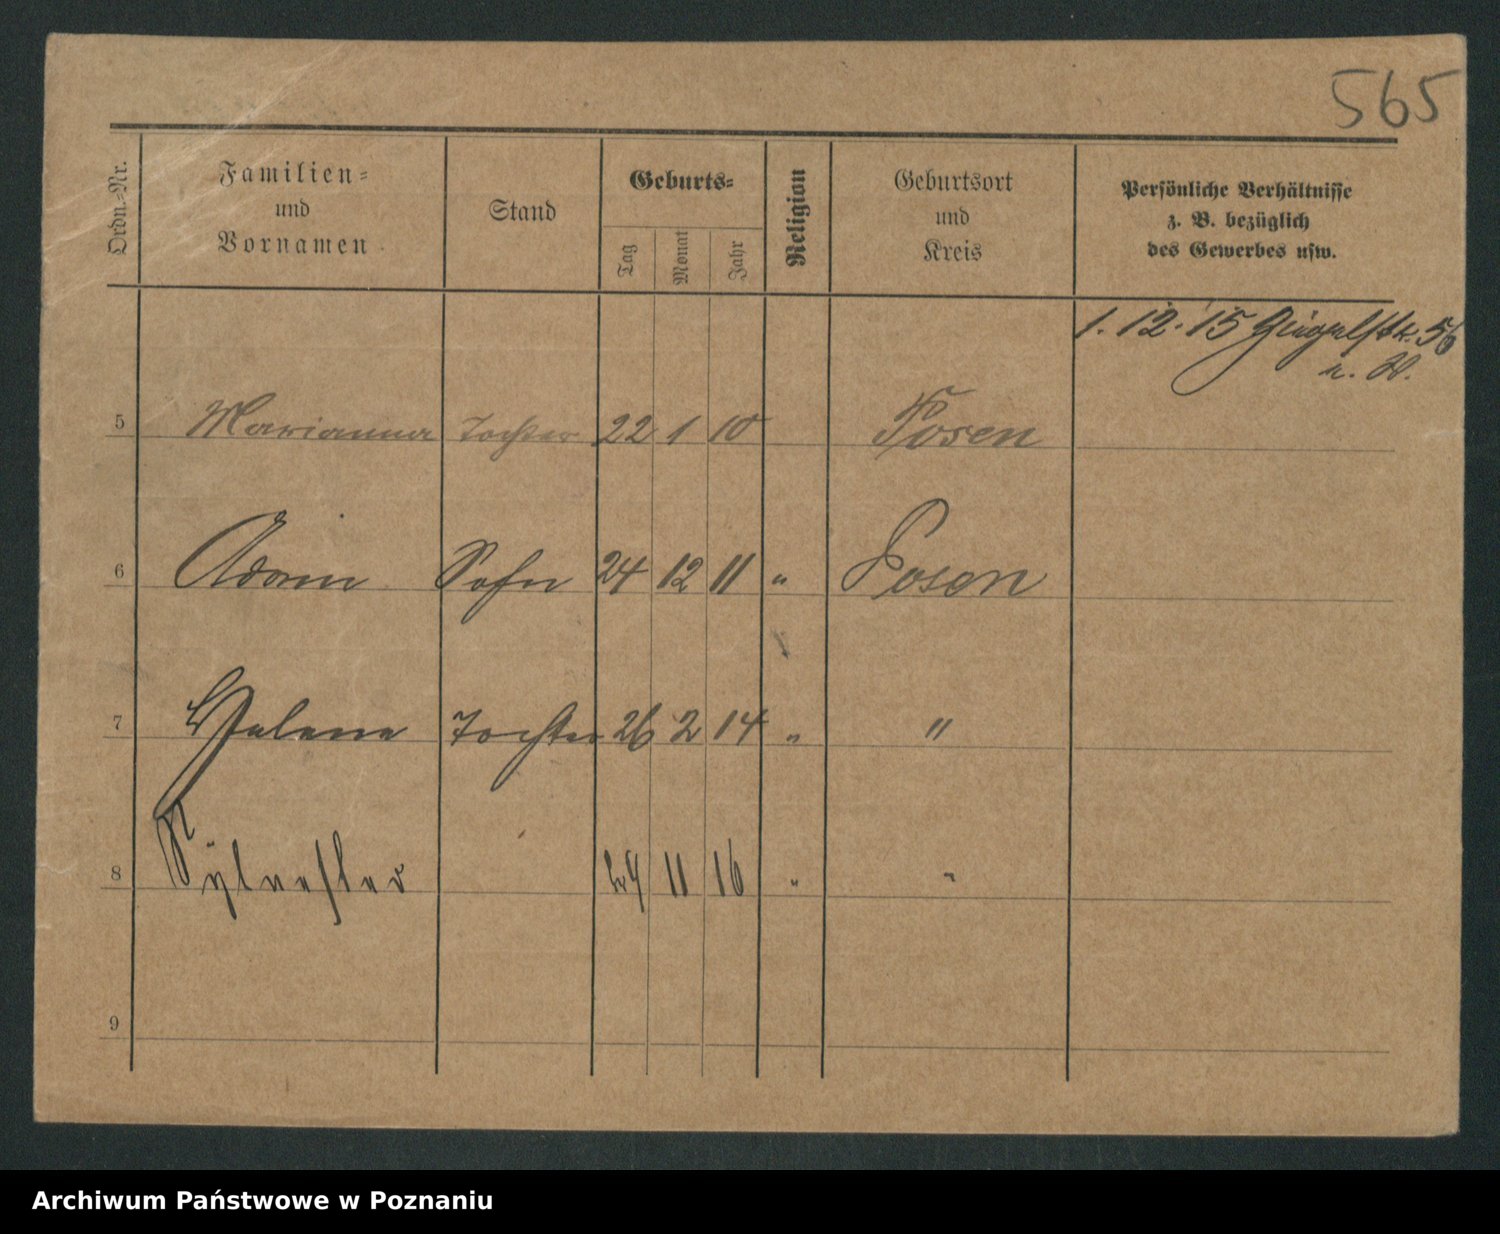 565
Ordn.-Nr.
Familien-
und
Vornamen
Stand
Geburts-
Tag
Monat
Jahr
Religion
Geburtsort
und
Kreis
Persönliche Verhältnisse
z. B. bezüglich
des Gewerbes usw.
1. 12. 15 56
5 Marianna Tochter 22 1 10 Posen
6 Adam Sohn 24 12 11 " Posen
7 Helene Tochter 26 2 14 " "
8 Sylvester 29 11 16 " "
9
Archiwum Państwowe w Poznaniu